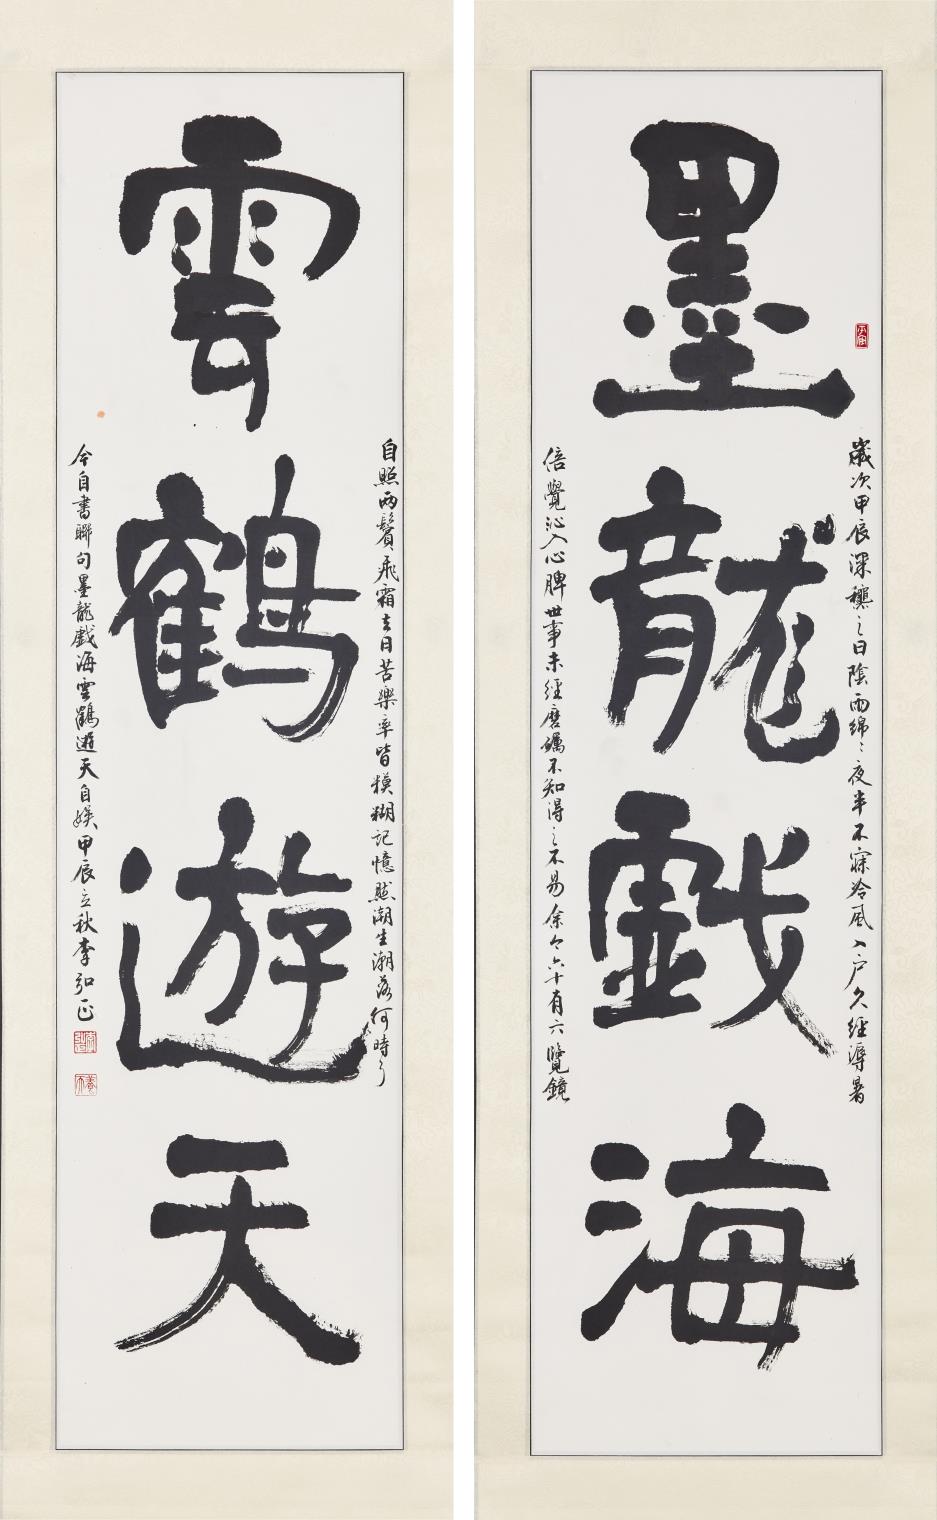 墨龍戲海
歲次甲辰深穐之日陰雨綿〻夜半不寐冷風入户久經溽暑
倍覺沁入心脾世事未經磨蠣不知得之不易余今六十有六覽鏡
雲鶴遊天
自照兩鬢飛霜去日苦樂率皆模糊記憶然潮生潮落何時了
今自書聯句墨龍戲海雲鶴遊天自娱甲辰立秋李弘正